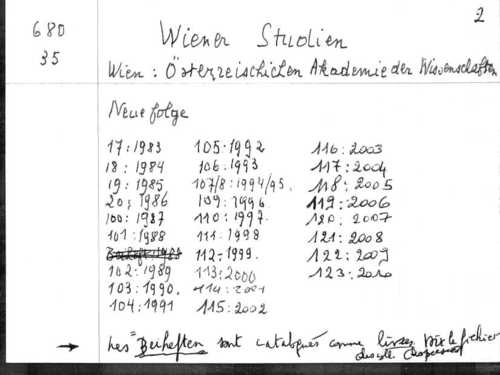 2
680
35
Wiener Studien
Wien : Österreischichen Akademie der Wissenschaften
Neue folge
17 : 1983
18 : 1984
19 : 1985
20 : 1986
100 : 1987
101 : 1988
102 : 1989
103 : 1990.
104 : 1991
105 : 1992
106 : 1993
107/8 : 1994/95.
109 : 1996
110 : 1997.
111 : 1998
112 : 1999.
113 : 2000
114 : 2001
115 : 2002
116 : 2003
117 : 2004
118 : 2005
119 : 2006
120 : 2007
121 : 2008
122 : 2009
123 : 2010
→ Les "Beiheften sont catalogués comme livres. Voir le fichier